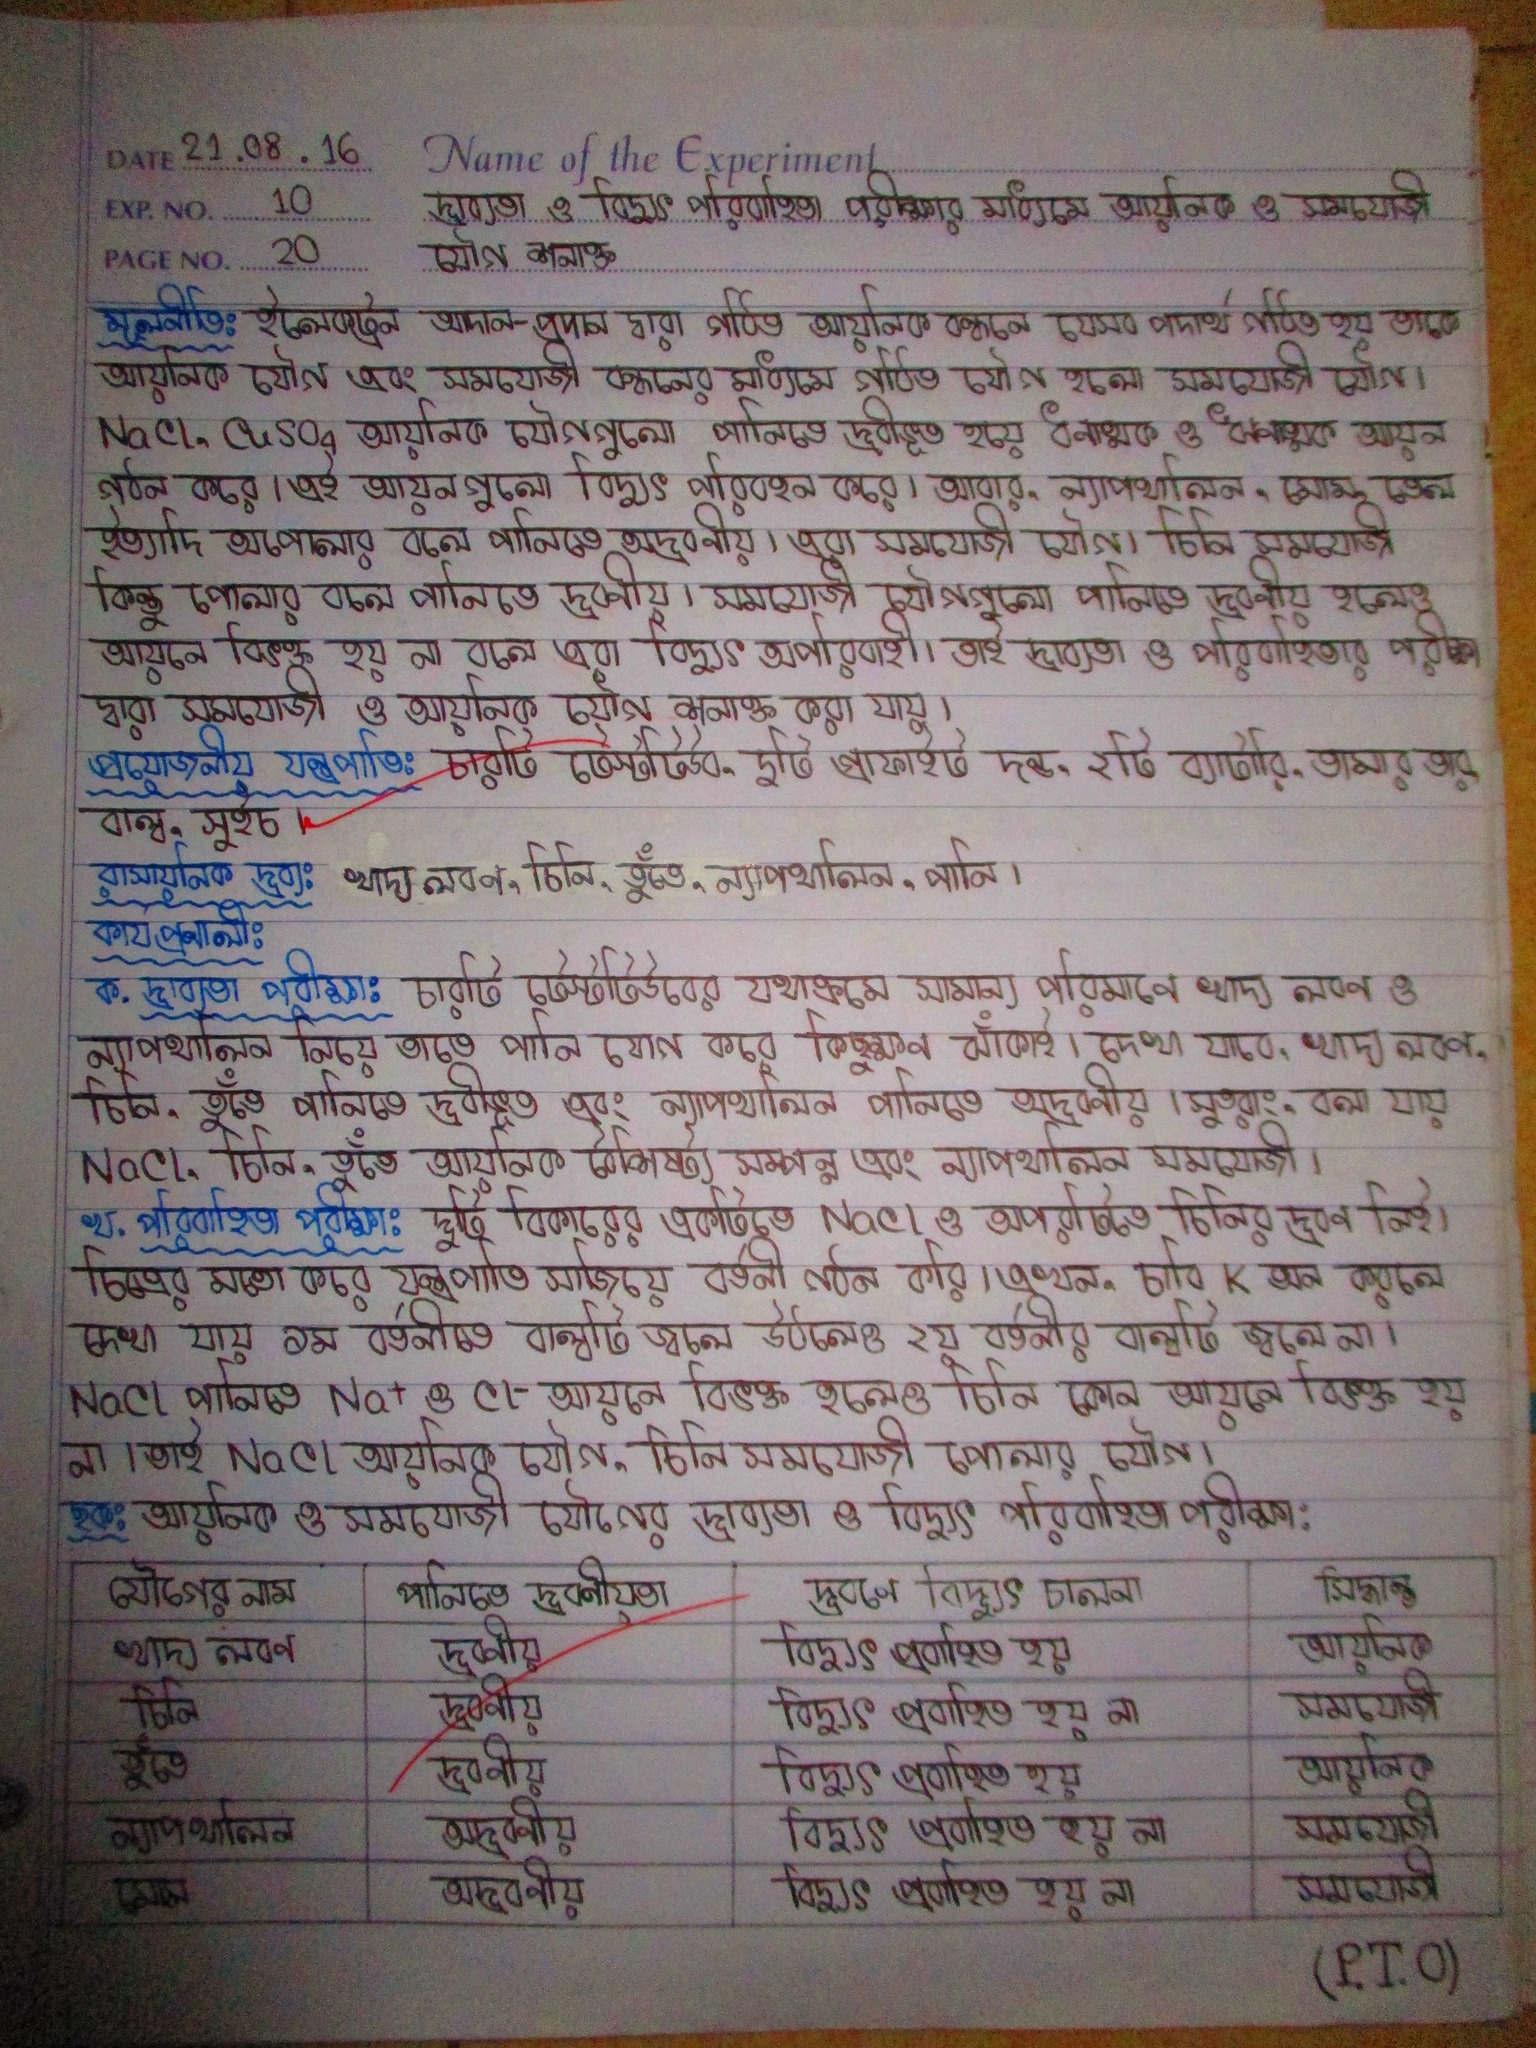 DATE 21.08.16 Name of the Experiment
EXP. NO. 10 দ্রাব্যতা ও বিদ্যুৎ পরিবাহিতা পরীক্ষার মাধ্যমে আয়নিক ও সমযোজী
PAGE NO. 20 যৌগ শনাক্ত
মূলনীতিঃ ইলেকট্রন আদান-প্রদান দ্বারা গঠিত আয়নিক বন্ধনে যেসব পদার্থ গঠিত হয় তাকে
আয়নিক যৌগ এবং সমযোজী বন্ধনের মাধ্যমে গঠিত যৌগ হলো সমযোজী যৌগ।
NaCl, CuSO4 আয়নিক যৌগগুলো পানিতে দ্রবীভূত হয়ে ধনাত্মক ও ঋণাত্মক আয়ন
গঠন করে। এই আয়নগুলো বিদ্যুৎ পরিবহন করে। আবার, ন্যাপথালিন, মোম, তেল
ইত্যাদি অপোলার বলে পানিতে অদ্রবণীয়। এরা সমযোজী যৌগ। চিনি সমযোজী
কিন্তু পোলার বলে পানিতে দ্রবণীয়। সমযোজী যৌগগুলো পানিতে দ্রবণীয় হলেও
আয়নে বিভক্ত হয় না বলে এরা বিদ্যুৎ অপরিবাহী। তাই দ্রাব্যতা ও পরিবাহিতার পরীক্ষা
দ্বারা সমযোজী ও আয়নিক যৌগ শনাক্ত করা যায়।
প্রয়োজনীয় যন্ত্রপাতিঃ চারটি টেস্টটিউব, দুটি গ্রাফাইট দন্ড, ২টি ব্যাটারি, তামার তার,
বাল্ব, সুইচ।
রাসায়নিক দ্রব্যঃ খাদ্য লবণ, চিনি, তুঁতে, ন্যাপথালিন, পানি।
কার্যপ্রনালীঃ
ক. দ্রাব্যতা পরীক্ষাঃ চারটি টেস্টটিউবের যথাক্রমে সামান্য পরিমাণে খাদ্য লবণ ও
ন্যাপথালিন নিয়ে তাতে পানি যোগ করে কিছুক্ষণ ঝাঁকাই। দেখা যাবে, খাদ্য লবণ,
চিনি, তুঁতে পানিতে দ্রবীভূত এবং ন্যাপথালিন পানিতে অদ্রবণীয়। সুতরাং, বলা যায়
NaCl, চিনি, তুঁতে আয়নিক বৈশিষ্ট্য সম্পন্ন এবং ন্যাপথালিন সমযোজী।
খ. পরিবাহিতা পরীক্ষাঃ দুটি বিকারের একটিতে NaCl ও অপরটিতে চিনির দ্রবণ নিই।
চিত্রের মতো করে যন্ত্রপাতি সাজিয়ে বর্তনী গঠন করি। এখন, চাবি K অন করলে
দেখা যায় ১ম বর্তনীতে বাল্বটি জ্বলে উঠলেও ২য় বর্তনীর বাল্বটি জ্বলে না।
NaCl পানিতে Na+ ও Cl- আয়নে বিভক্ত হলেও চিনি কোন আয়নে বিভক্ত হয়
না। তাই NaCl আয়নিক যৌগ, চিনি সমযোজী পোলার যৌগ।
ছকঃ আয়নিক ও সমযোজী যৌগের দ্রাব্যতা ও বিদ্যুৎ পরিবাহিতা পরীক্ষা:
যৌগের নাম পানিতে দ্রবণীয়তা দ্রবণে বিদ্যুৎ চালনা সিদ্ধান্ত
খাদ্য লবণ দ্রবণীয় বিদ্যুৎ প্রবাহিত হয় আয়নিক
চিনি দ্রবণীয় বিদ্যুৎ প্রবাহিত হয় না সমযোজী
তুঁতে দ্রবণীয় বিদ্যুৎ প্রবাহিত হয় আয়নিক
ন্যাপথালিন অদ্রবণীয় বিদ্যুৎ প্রবাহিত হয় না সমযোজী
মোম অদ্রবণীয় বিদ্যুৎ প্রবাহিত হয় না সমযোজী
(P.T.O)